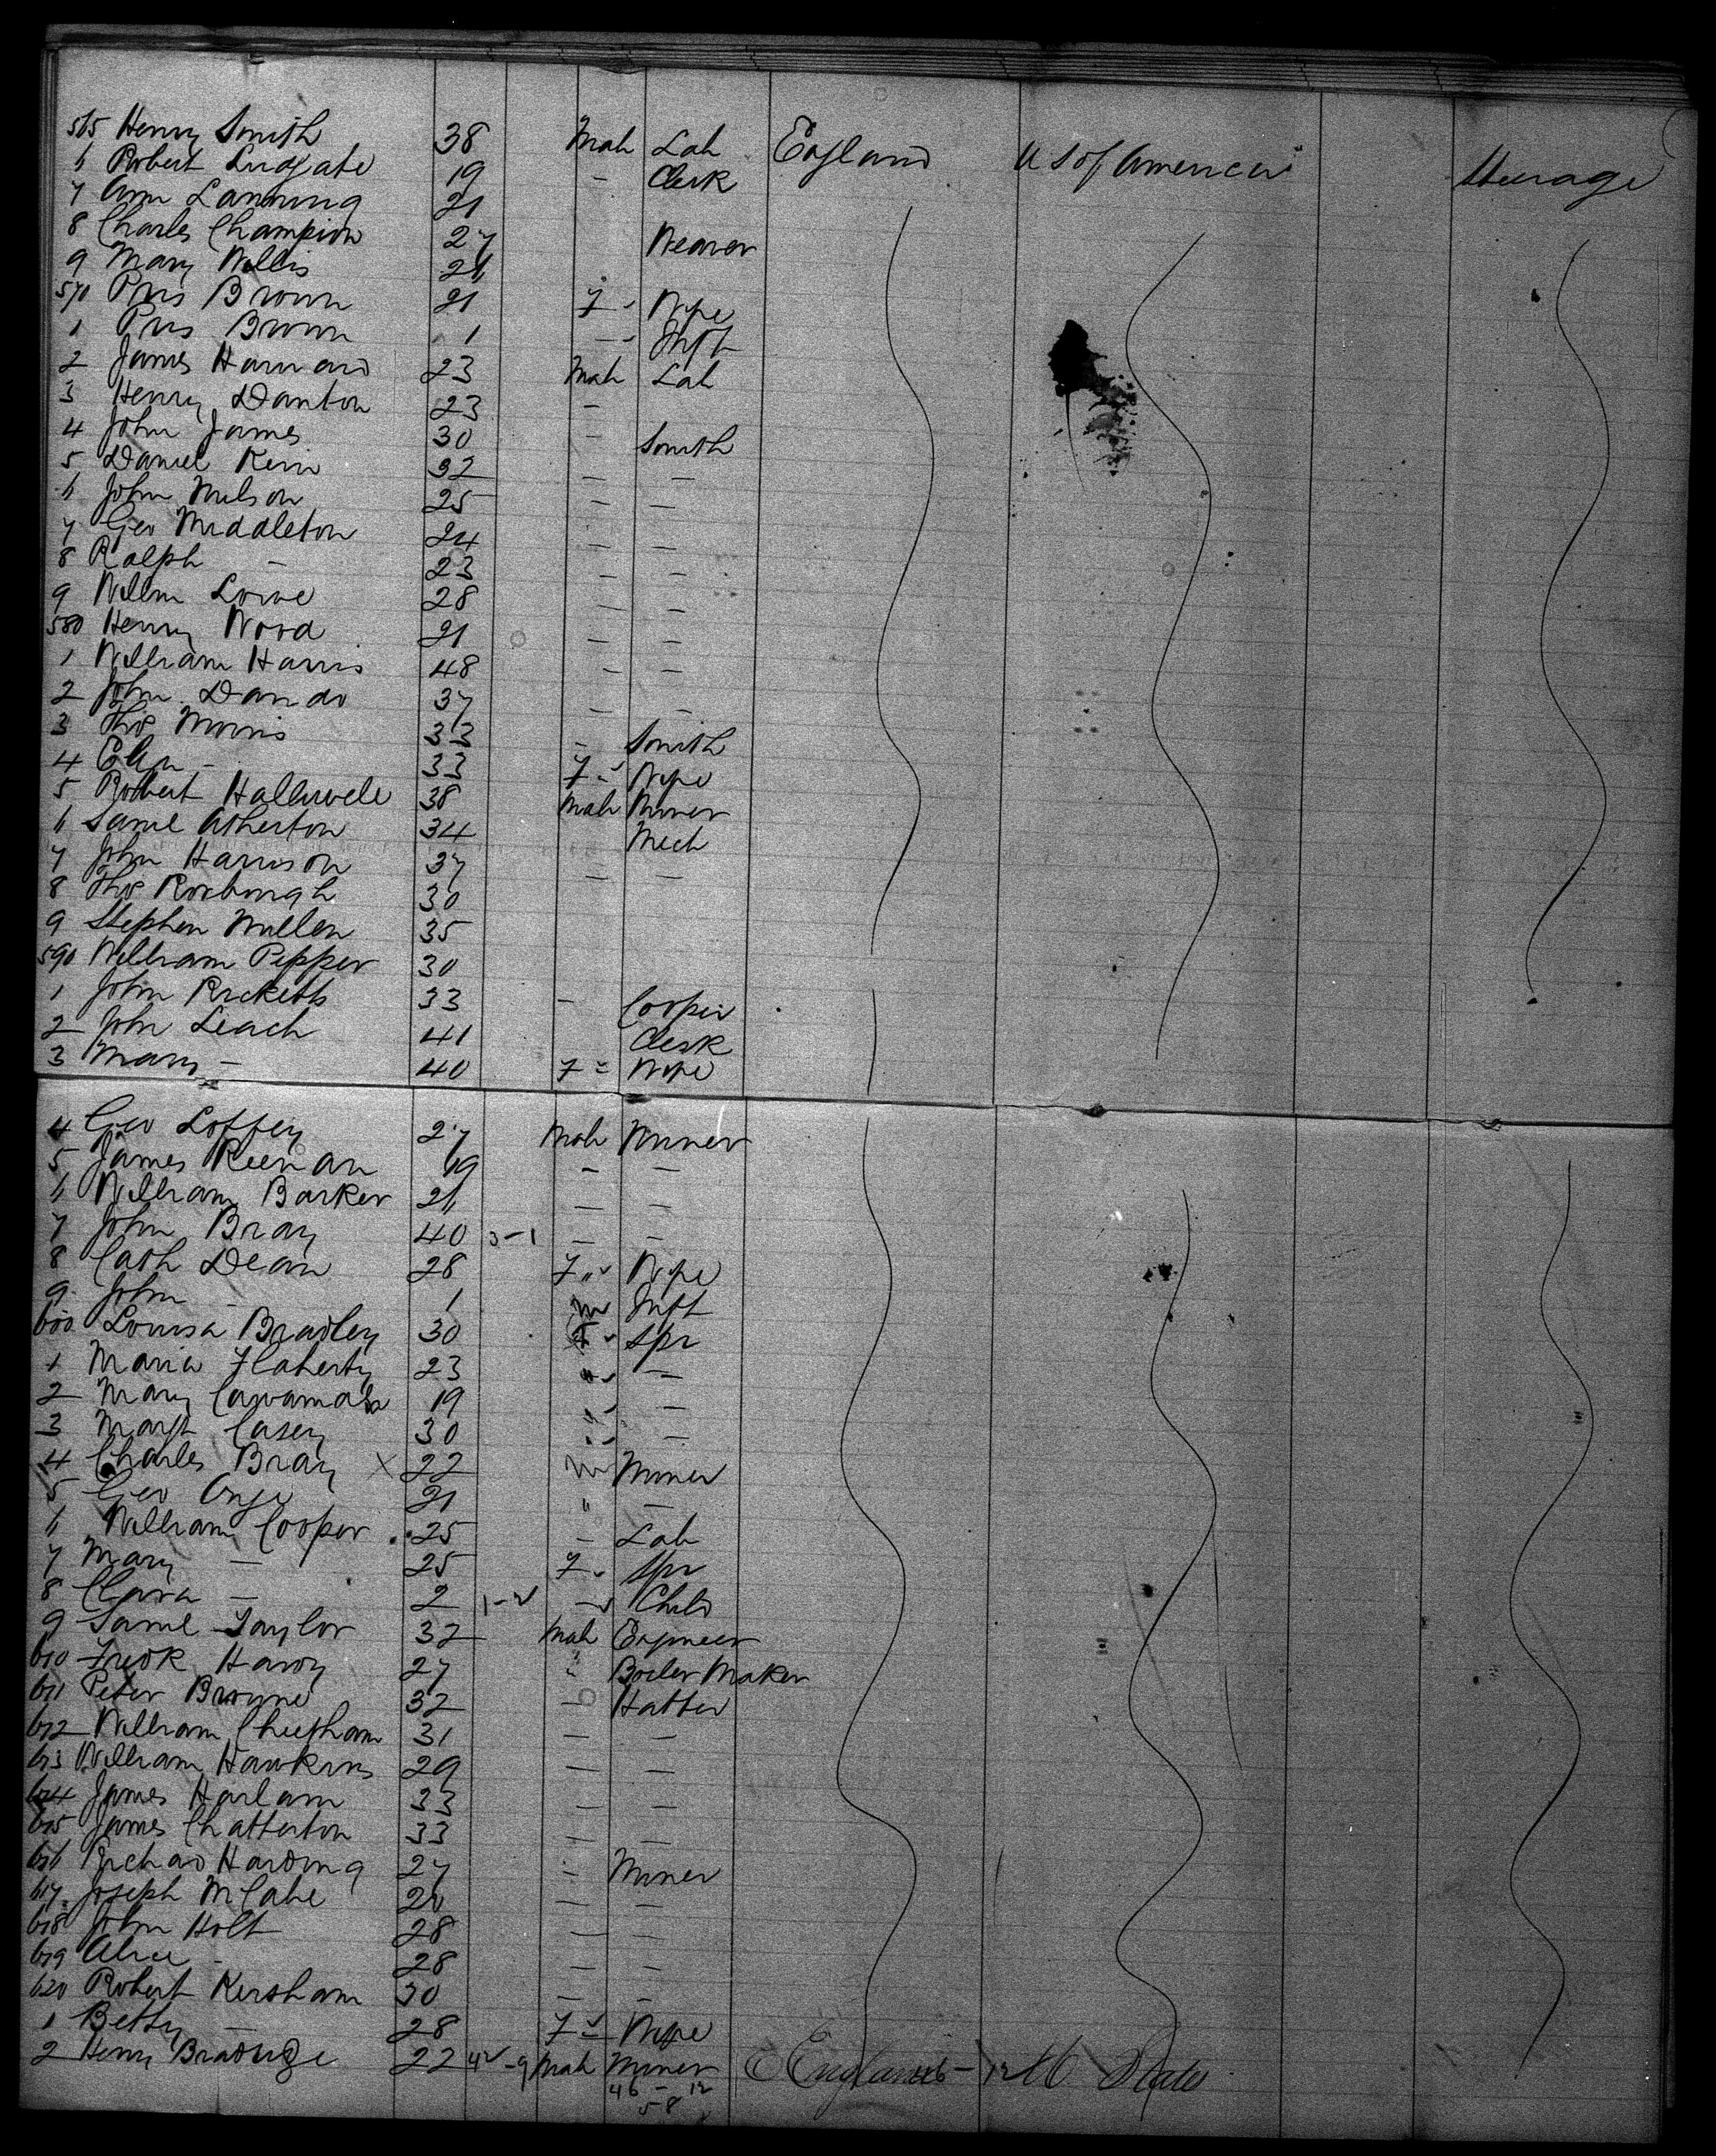 565 Henry Smith 38 Male Lab England U S of America Steerage
6 Robert Ludgate 19 - Clerk
7 Ann Lanning 21
8 Charles Champion 27 Weaver
9 Mary Willis 26
570 Pris Brown 21 F " Wife
1 Pris Brown 1 - - Inft
2 James Harnard 23 Male Lab
3 Henry Danton 23 -
4 John James 30 - Smith
5 Daniel Kern 32 - -
6 John Wilson 25 - -
7 Geo Middleton 24 - -
8 Ralph - 23 - -
9 Willm Lowe 28 - -
580 Henry Wood 21 - -
1 William Harris 48 - -
2 John Dando 37 - -
3 Thos Morris 33 - Smith
4 - 33 F " Wife
5 Robert Halliwell 38 Male Miner
6 Saml Atherton 34 Mech
7 John Harrison 37 - -
8 Thos Roxburgh 30
9 Stephen Mullen 35
590 William Pepper 30
1 John Ricketts 33 - Cooper
2 John Leach 41 Clerk
3 Mary - 40 F " Wife
4 Geo 27 Male Miner
5 James Keenan 19 - -
6 William Barker 26 - -
7 John Bray 40 3-1 - -
8 Cath Dean 28 F " Wife
9 John - 1 m Inft
600 Louisa Bradley 30 F " Spr
1 Maria Flaherty 23 " -
2 Mary 19 " -
3 Margt Casey 30 " -
4 Charles Bray X 22 m Miner
5 Geo 21 " -
6 William Cooper 25 - Lab
7 Mary - 25 F " Spr
8 Clara - 2 1-2 - Child
9 Saml Taylor 32 Male Engineer
610 Fredk Hardy 27 " Boiler Maker
611 Peter Browne 32 - Hatter
612 William Cheetham 31 - -
613 William Hawkins 29 - -
614 James Harlam 33 - -
615 James Chatterton 33 - -
616 Richard Harding 27 - Miner
617 Joseph McCabe 20 - -
618 John Holt 28 - -
619 Alice - 28 - -
620 Robert Kersham 30 - -
1 Betty - 28 F " Wife
2 Henry 22 Male Miner England U States
46 - 12
58